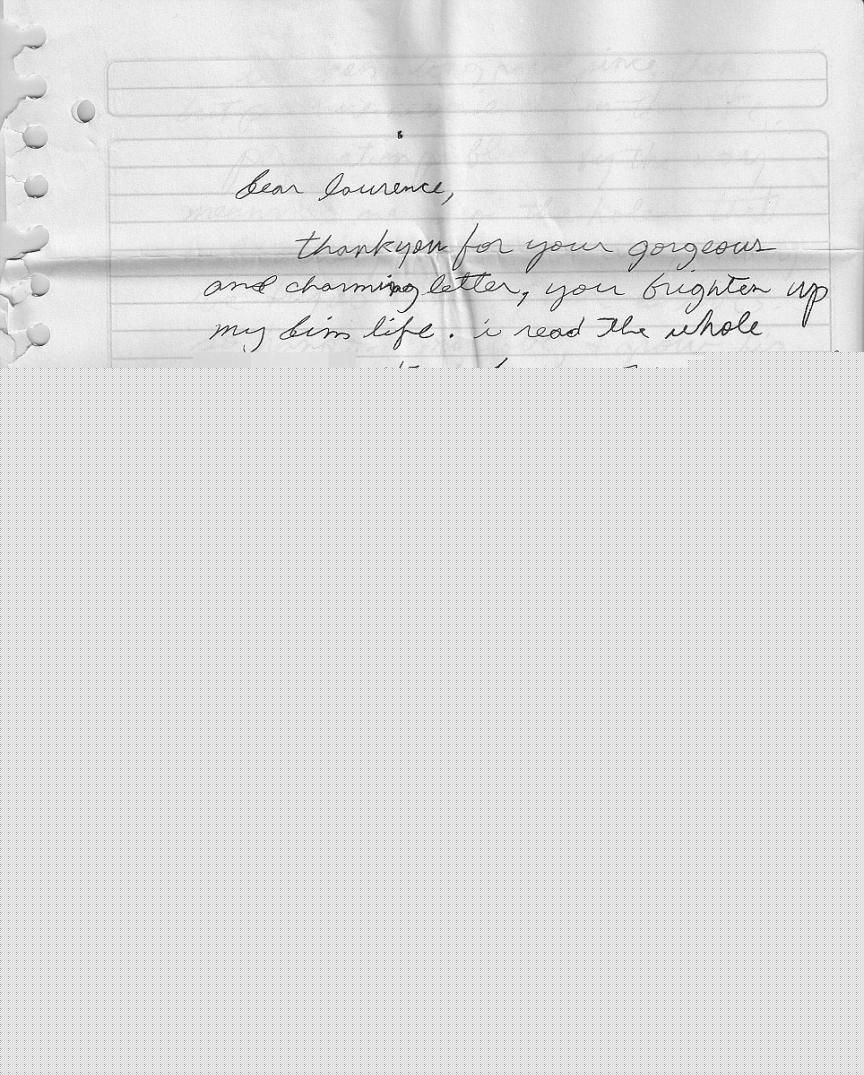 dear laurence,
thankyou for your gorgeous
and charming letter, you brighten up
my dim life. i read the whole